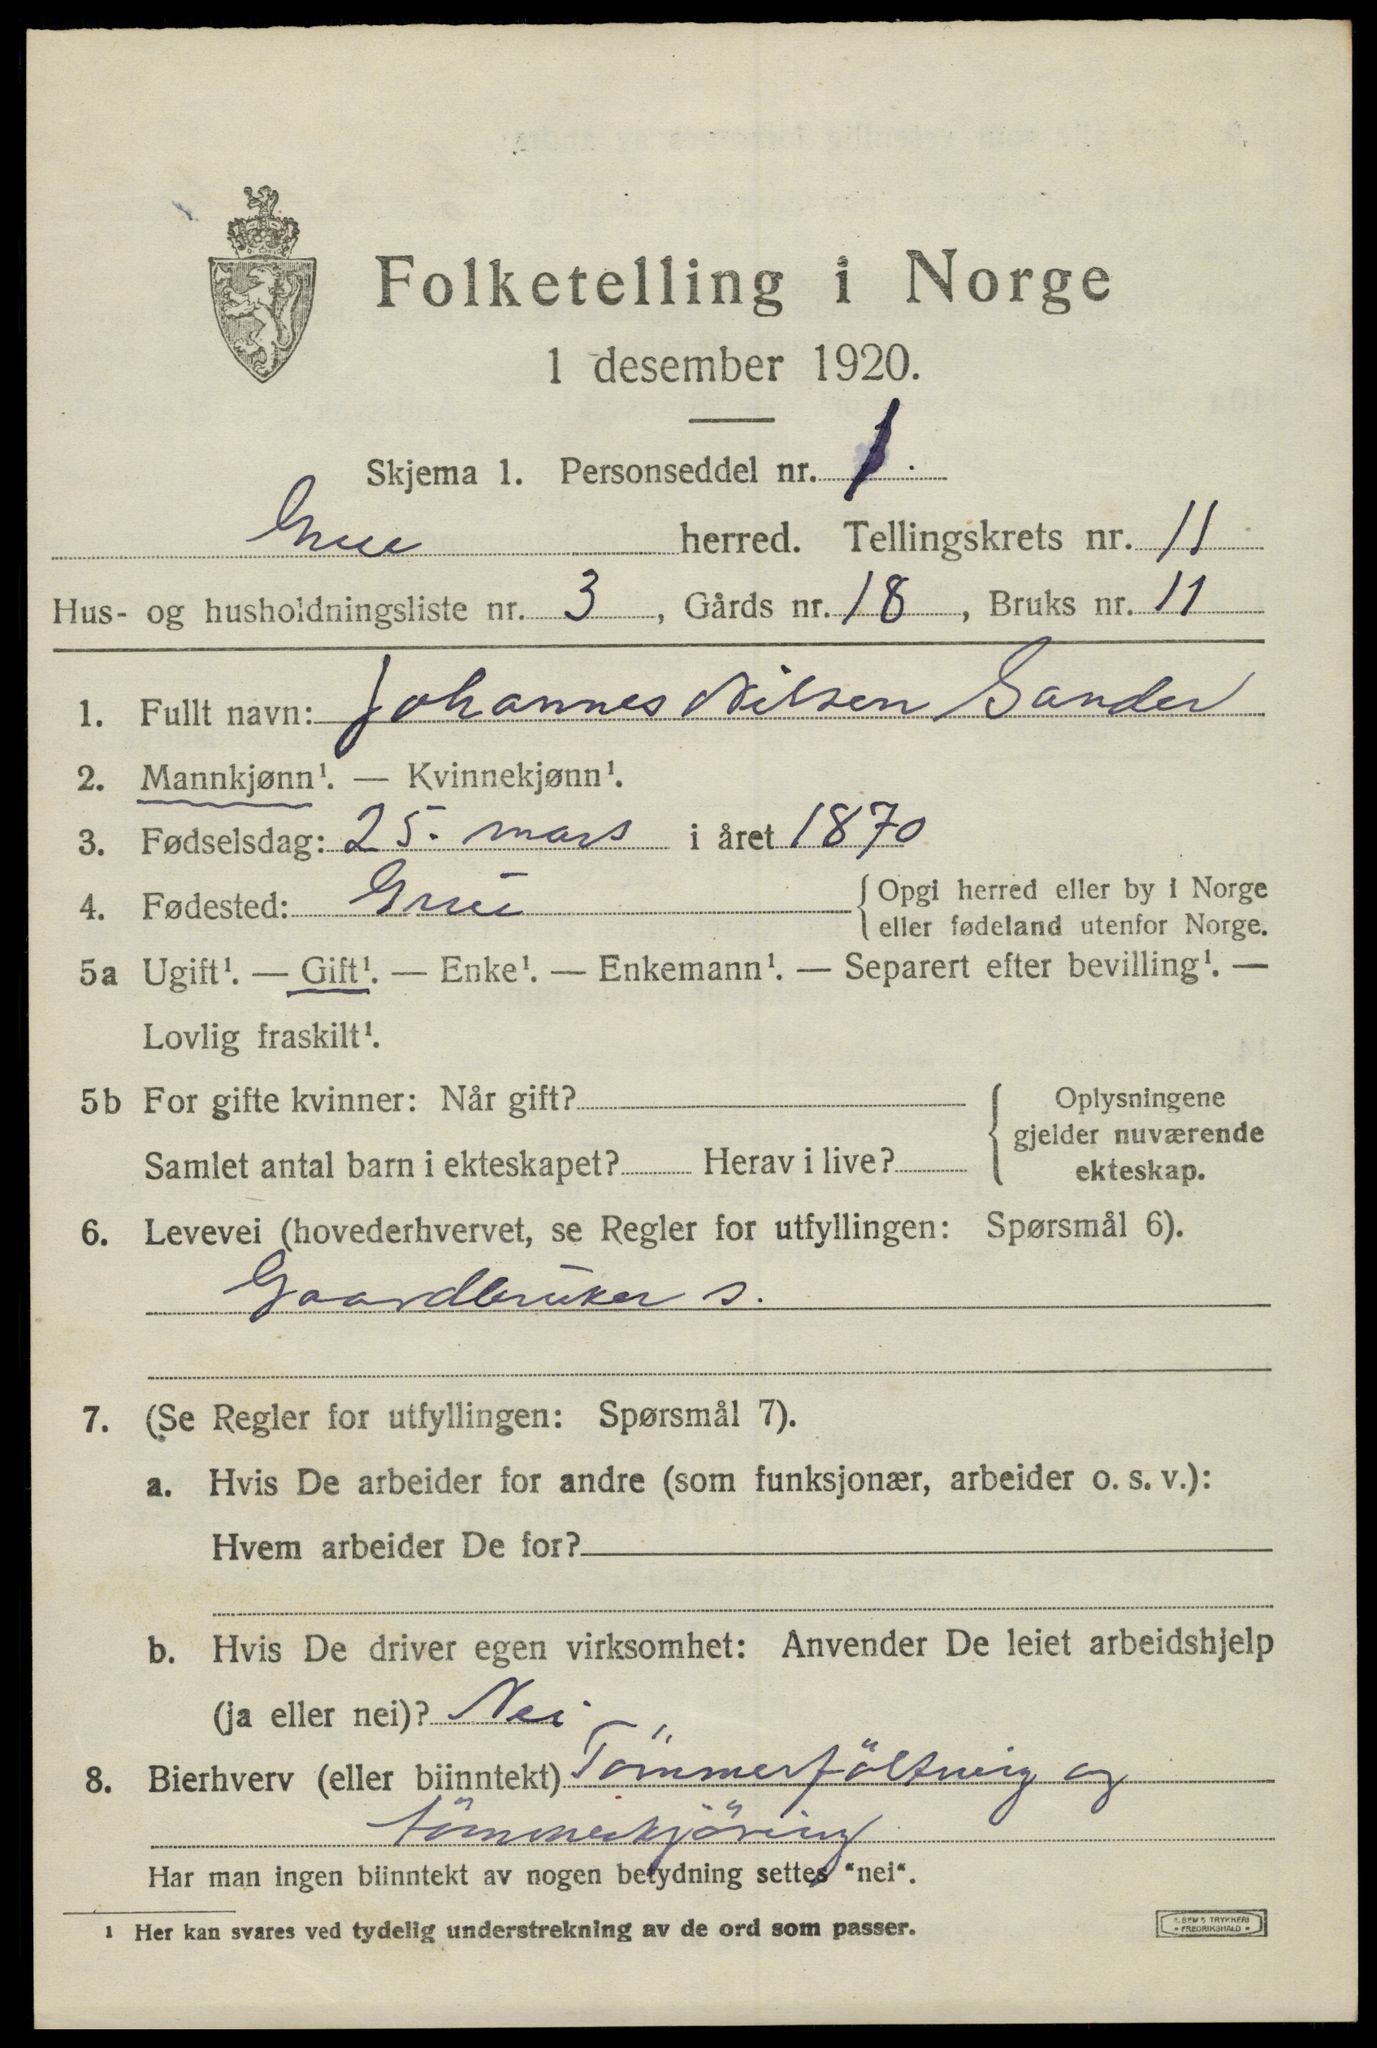 Folketelling i Norge
1 desember 1920.
Skjema 1. Personseddel nr. 1.
Grue herred. Tellingskrets nr. 11
Hus- og husholdningsliste nr. 3, Gårds nr. 18, Bruks nr. 11
1. Fullt navn: Johannes Nilsen Sander
2. Mannkjønn¹. — Kvinnekjønn¹.
3. Fødselsdag: 25. mars i året 1870
4. Fødested: Grue { Opgi herred eller by i Norge
eller fødeland utenfor Norge.
5a Ugift¹. — Gift¹. — Enke¹. — Enkemann¹. — Separert efter bevilling¹. —
Lovlig fraskilt¹.
5b For gifte kvinner: Når gift? { Oplysningene
gjelder nuværende
Samlet antal barn i ekteskapet? Herav i live? ekteskap.
6. Levevei (hovederhvervet, se Regler for utfyllingen: Spørsmål 6).
Gaardbruker s.
7. (Se Regler for utfyllingen: Spørsmål 7).
a. Hvis De arbeider for andre (som funksjonær, arbeider o. s. v.):
Hvem arbeider De for?
b. Hvis De driver egen virksomhet: Anvender De leiet arbeidshjelp
(ja eller nei)? Nei
8. Bierhverv (eller biinntekt) Tömmerflötning og
tömmerkjöring
Har man ingen biinntekt av nogen betydning settes "nei".
1 Her kan svares ved tydelig understrekning av de ord som passer.
TRYKKERI
FREDRIKSHALD